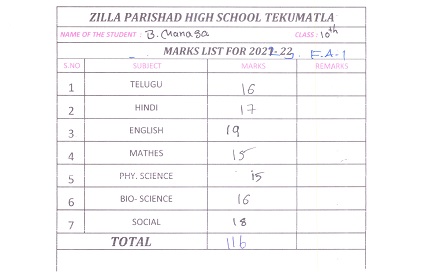 ZILLA PARISHAD HIGH SCHOOL TEKUMATLA
NAME OF THE STUDENT : B. Manasa CLASS : 10th
MARKS LIST FOR 2021-22 F.A-1
S.NO SUBJECT MARKS REMARKS
1 TELUGU 16
2 HINDI 17
3 ENGLISH 19
4 MATHES 15
5 PHY. SCIENCE 15
6 BIO- SCIENCE 16
7 SOCIAL 18
TOTAL 116